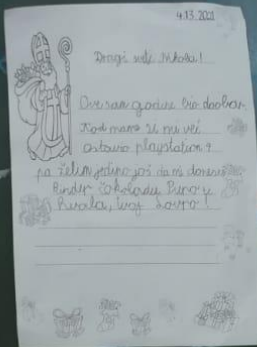 4.13.2021
Dragi sveti Nikola!
Ove sam godine bio dobar
Kod mame si mi već
ostavio playstation 4
pa želim jedino još da mi doneseš
Kinder čokoladu
tvoj Lovro!